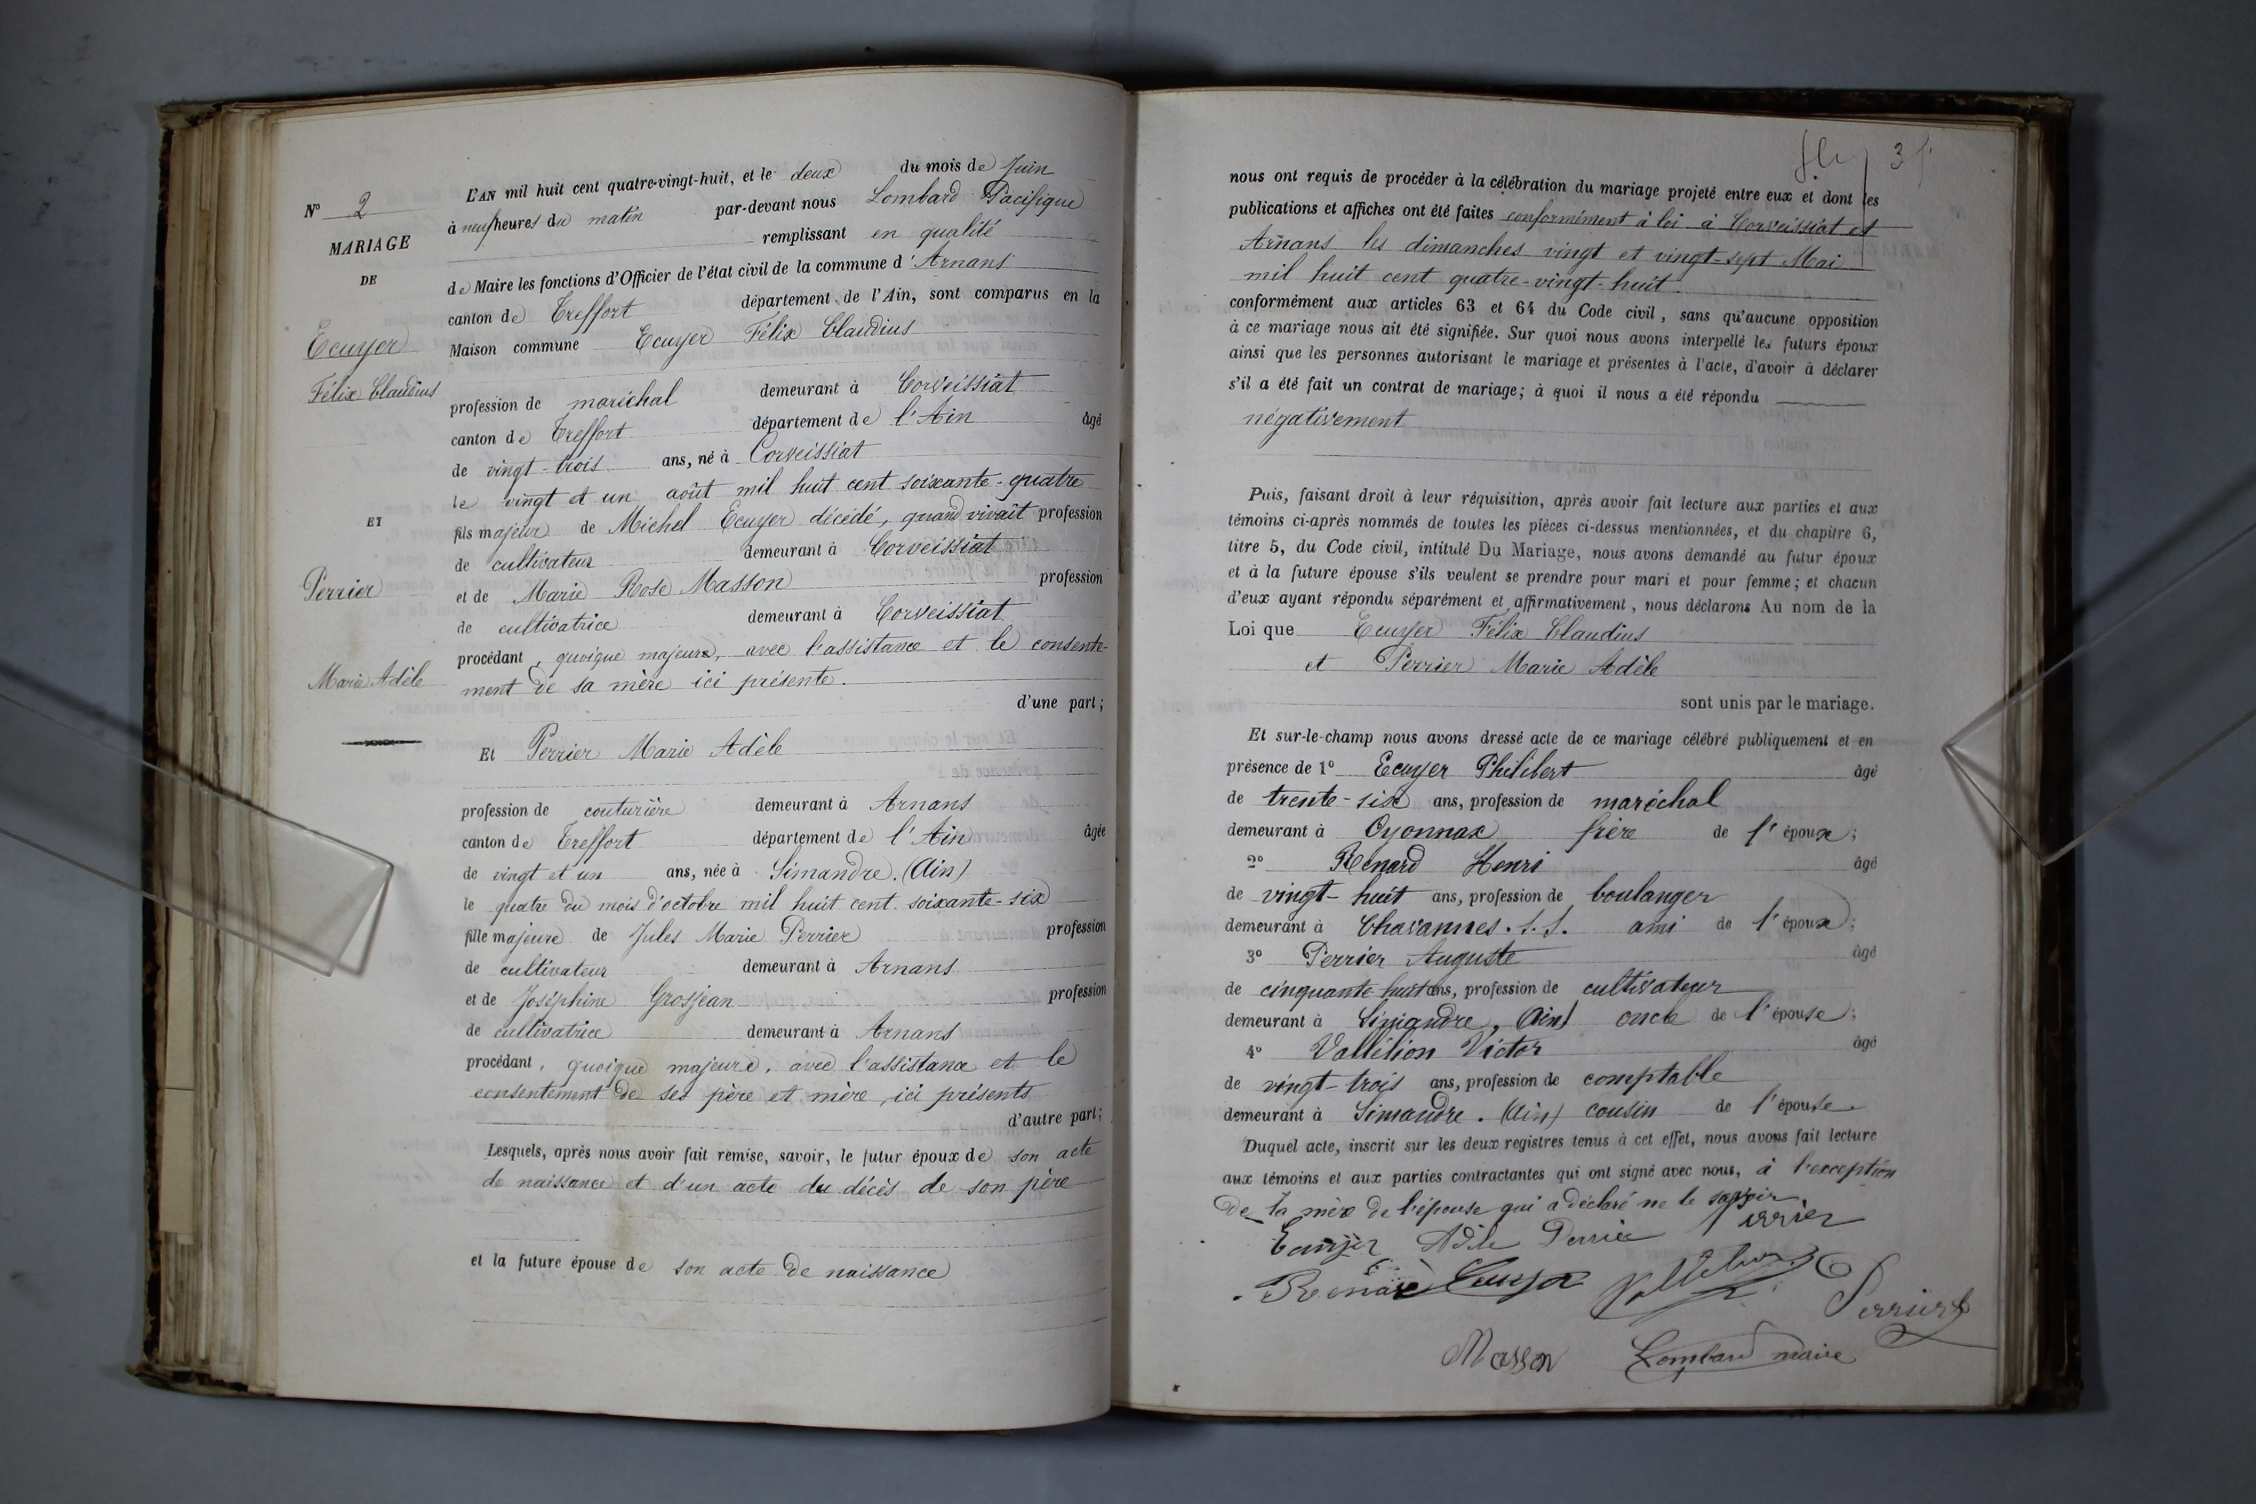 N° 2
MARIAGE
DE
Ecuyer
Félix Claudius
ET
Perrier
Marie Adèle
L'AN mil huit cent quatre-vingt-huit, et le deux du mois de Juin
à neuf heures du matin par-devant nous Lombard Pacifique
remplissant en qualité
de Maire les fonctions d'Officier de l'état civil de la commune d'Arnans
canton de Treffort département de l'Ain, sont comparus en la
Maison commune Ecuyer Félix Claudius
profession de maréchal demeurant à Corveissiat
canton de Treffort département de l'Ain âgé
de vingt-trois ans, né à Corveissiat
le vingt et un août mil huit cent soixante-quatre
fils majeur de Michel Ecuyer décédé, quand vivait profession
de cultivateur demeurant à Corveissiat
et de Marie Rose Masson profession
de cultivatrice demeurant à Corveissiat
procédant, quoique majeur, avec l'assistance et le consente-
ment de sa mère ici présente.
d'une part;
Et Perrier Marie Adèle
profession de couturière demeurant à Arnans
canton de Treffort département de l'Ain âgée
de vingt et un ans, née à Simandre. (Ain)
le quatre du mois d'octobre mil huit cent soixante-six
fille majeure de Jules Marie Perrier profession
de cultivateur demeurant à Arnans
et de Joséphine Grosjean profession
de cultivatrice demeurant à Arnans
procédant, quoique majeure, avec l'assistance et le
consentement de ses père et mère, ici présents
d'autre part;
Lesquels, après nous avoir fait remise, savoir, le futur époux de son acte
de naissance et d'un acte du décès de son père
et la future épouse de son acte de naissance
3
nous ont requis de procéder à la célébration du mariage projeté entre eux et dont les
publications et affiches ont été faites conformément à loi à Corveissiat et
Arnans les dimanches vingt et vingt-sept Mai
mil huit cent quatre-vingt-huit.
conformément aux articles 63 et 64 du Code civil, sans qu'aucune opposition
à ce mariage nous ait été signifiée. Sur quoi nous avons interpellé les futurs époux
ainsi que les personnes autorisant le mariage et présentes à l'acte, d'avoir à déclarer
s'il a été fait un contrat de mariage; à quoi il nous a été répondu
négativement
Puis, faisant droit à leur réquisition, après avoir fait lecture aux parties et aux
témoins ci-après nommés de toutes les pièces ci-dessus mentionnées, et du chapitre 6,
titre 5, du Code civil, intitulé Du Mariage, nous avons demandé au futur époux
et à la future épouse s'ils veulent se prendre pour mari et pour femme; et chacun
d'eux ayant répondu séparément et affirmativement, nous déclarons Au nom de la
Loi que Ecuyer Félix Claudius
et Perrier Marie Adèle
sont unis par le mariage.
Et sur-le-champ nous avons dressé acte de ce mariage célébré publiquement et en
présence de 1° Ecuyer Philibert âgé
de trente-six ans, profession de maréchal
demeurant à Oyonnax frère de l'époux;
2° Renard Henri âgé
de vingt-huit ans, profession de boulanger
demeurant à Chavannes.s.S. ami de l'époux;
3° Perrier Auguste âgé
de cinquante huit ans, profession de cultivateur
demeurant à Simandre, (Ain) oncle de l'épouse;
4° Vallélion Victor âgé
de vingt-trois ans, profession de comptable
demeurant à Simandre. (Ain) cousin de l'épouse.
Duquel acte, inscrit sur les deux registres tenus à cet effet, nous avons fait lecture
aux témoins et aux parties contractantes qui ont signé avec nous, à l'exception
de la mère de l'épouse qui a déclaré ne le savoir.
Ecuyer Adèle Perrier Perrier
Renard Ecuyer Vallélion Perrier
Masson Lombard maire